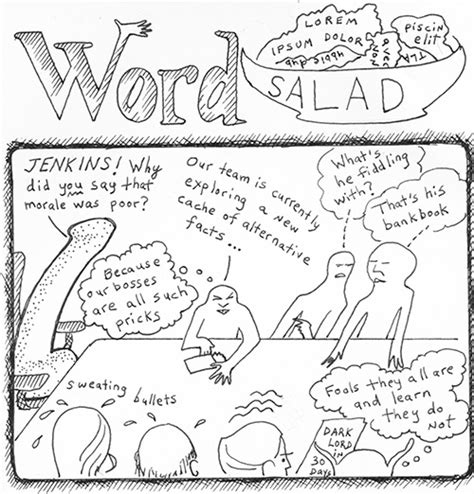 Word
SALAD
LOREM
IPSUM DOLOR
PISCIN
ELIT
JENKINS! Why
did you say that
morale was poor?
Our team is currently
exploring a new
cache of alternative
facts...
What's
he fiddling
with?
That's his
bankbook
Because
our bosses
are all such
pricks
sweating bullets
Fools they all are
and learn
they do
not
DARK
LORD
IN
30
DAYS